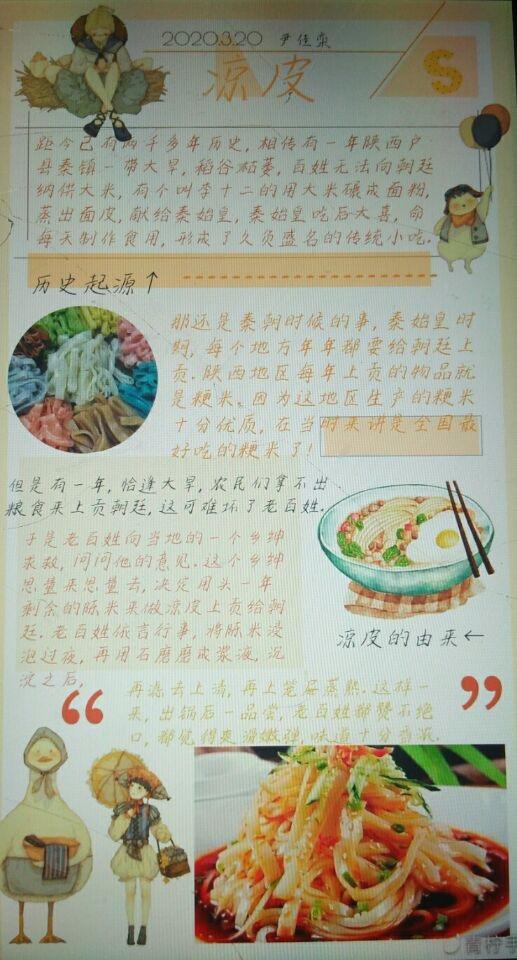 2020.3.20 尹佳栾
S
凉皮
距今已有两千多年历史,相传有一年陕西户
县秦镇一带大旱,稻谷枯萎,百姓无法向朝廷
纳供大米,有个叫李十二的用大米碾成面粉,
蒸出面皮,献给秦始皇,秦始皇吃后大喜,命
每天制作食用,形成了久负盛名的传统小吃.
历史起源↑
那还是秦朝时候的事,秦始皇时
期,每个地方年年都要给朝廷上
贡.陕西地区每年上贡的物品就
是粳米.因为这地区生产的粳米
十分优质,在当时来讲是全国最
好吃的粳米了!
但是有一年,恰逢大旱,农民们拿不出
粮食来上贡朝廷,这可难坏了老百姓.
于是老百姓向当地的一个乡绅
求救,问问他的意见.这个乡绅
思量来思量去,决定用头一年
剩余的陈米来做凉皮上贡给朝
廷.老百姓依言行事,将陈米浸
泡过夜,再用石磨磨成浆液,沉
淀之后,
凉皮的由来←
“ 再滤去上清,再上笼屉蒸熟.这样一 ”
来,出锅后一品尝,老百姓都赞不绝
口,都觉得爽滑嫩弹,味道十分香浓.